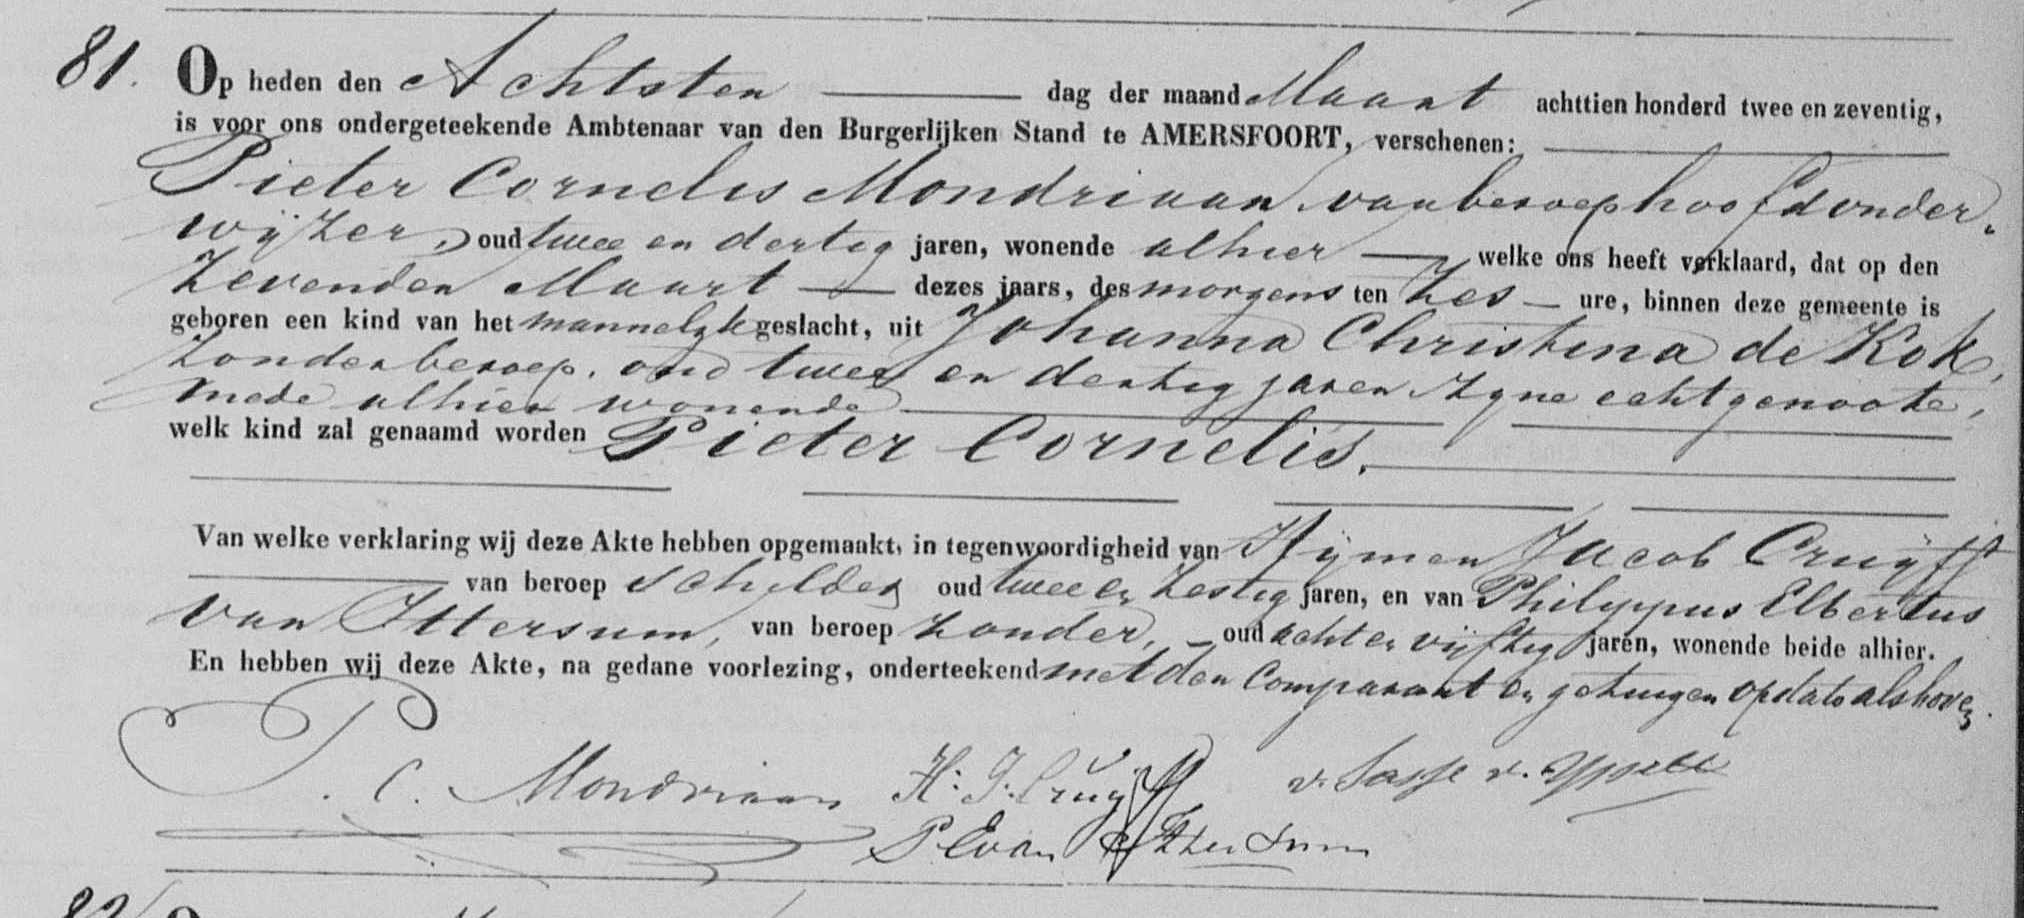 81. Op heden den Achtsten dag der maand Maart achttien honderd twee en zeventig,
is voor ons ondergeteekende Ambtenaar van den Burgerlijken Stand te AMERSFOORT, verschenen:
Pieter Cornelis Mondriaan, van beroep hoofdonder-
wijzer, oud twee en dertig jaren, wonende alhier welke ons heeft verklaard, dat op den
zevenden Maart dezes jaars, des morgens ten zes ure, binnen deze gemeente is
geboren een kind van het mannelijk geslacht, uit Johanna Christina de Kok,
zonder beroep, oud twee en dertig jaren zyne echtgenoote,
mede alhier wonende
welk kind zal genaamd worden Pieter Cornelis.
Van welke verklaring wij deze Akte hebben opgemaakt, in tegenwoordigheid van Hijman Jacob Cruijff
van beroep schilder oud twee en zestig jaren, en van Philippus Elbertus
van Ittersum, van beroep zonder, oud acht en vijftig jaren, wonende beide alhier.
En hebben wij deze Akte, na gedane voorlezing, onderteekend met den Comparant en getuigen op dato als boven.
P. C. Mondriaan H: J. Cruijff v. Sasse v. Ysselt
P E van Ittersum
82